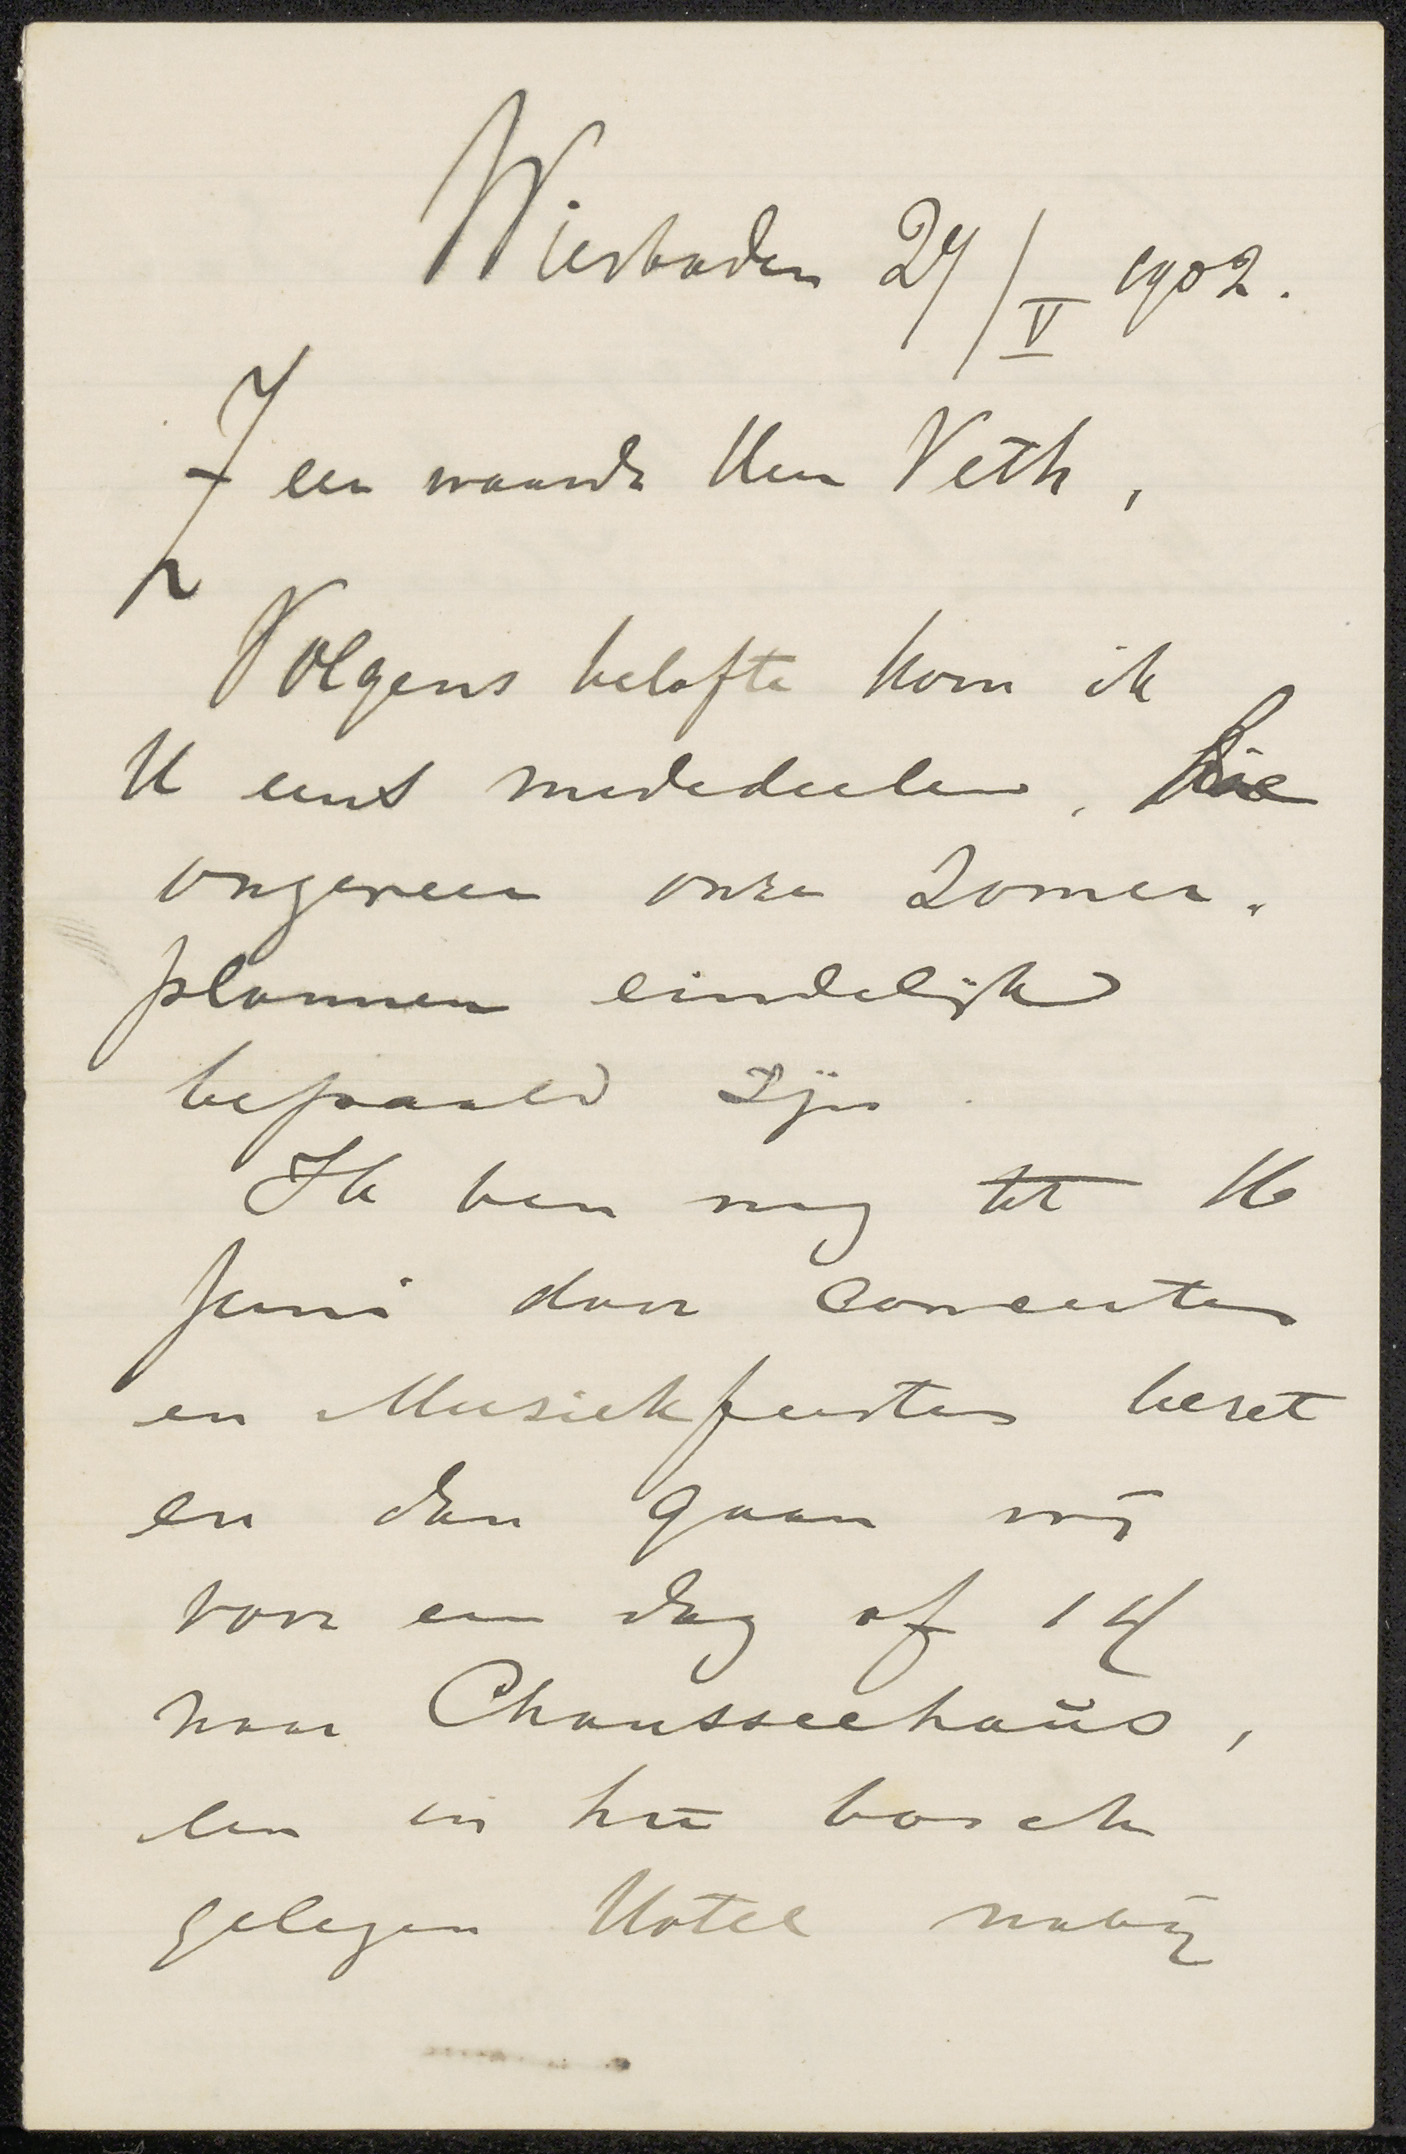 Wiesbaden 27/V 1902.
Zeer waarde Heer Veth,
Volgens belofte kom ik
U eens mededeelen, hoe
ongeveer onze Zomer-
plannen eindelijk
bepaald zijn.
Ik ben nog tot 16
Juni door concerten
en Musiekfeesten bezet
en dan gaan wij
voor een dag of 14
naar Chausseehaüs,
een in het bosch
gelegen Hotel nabij